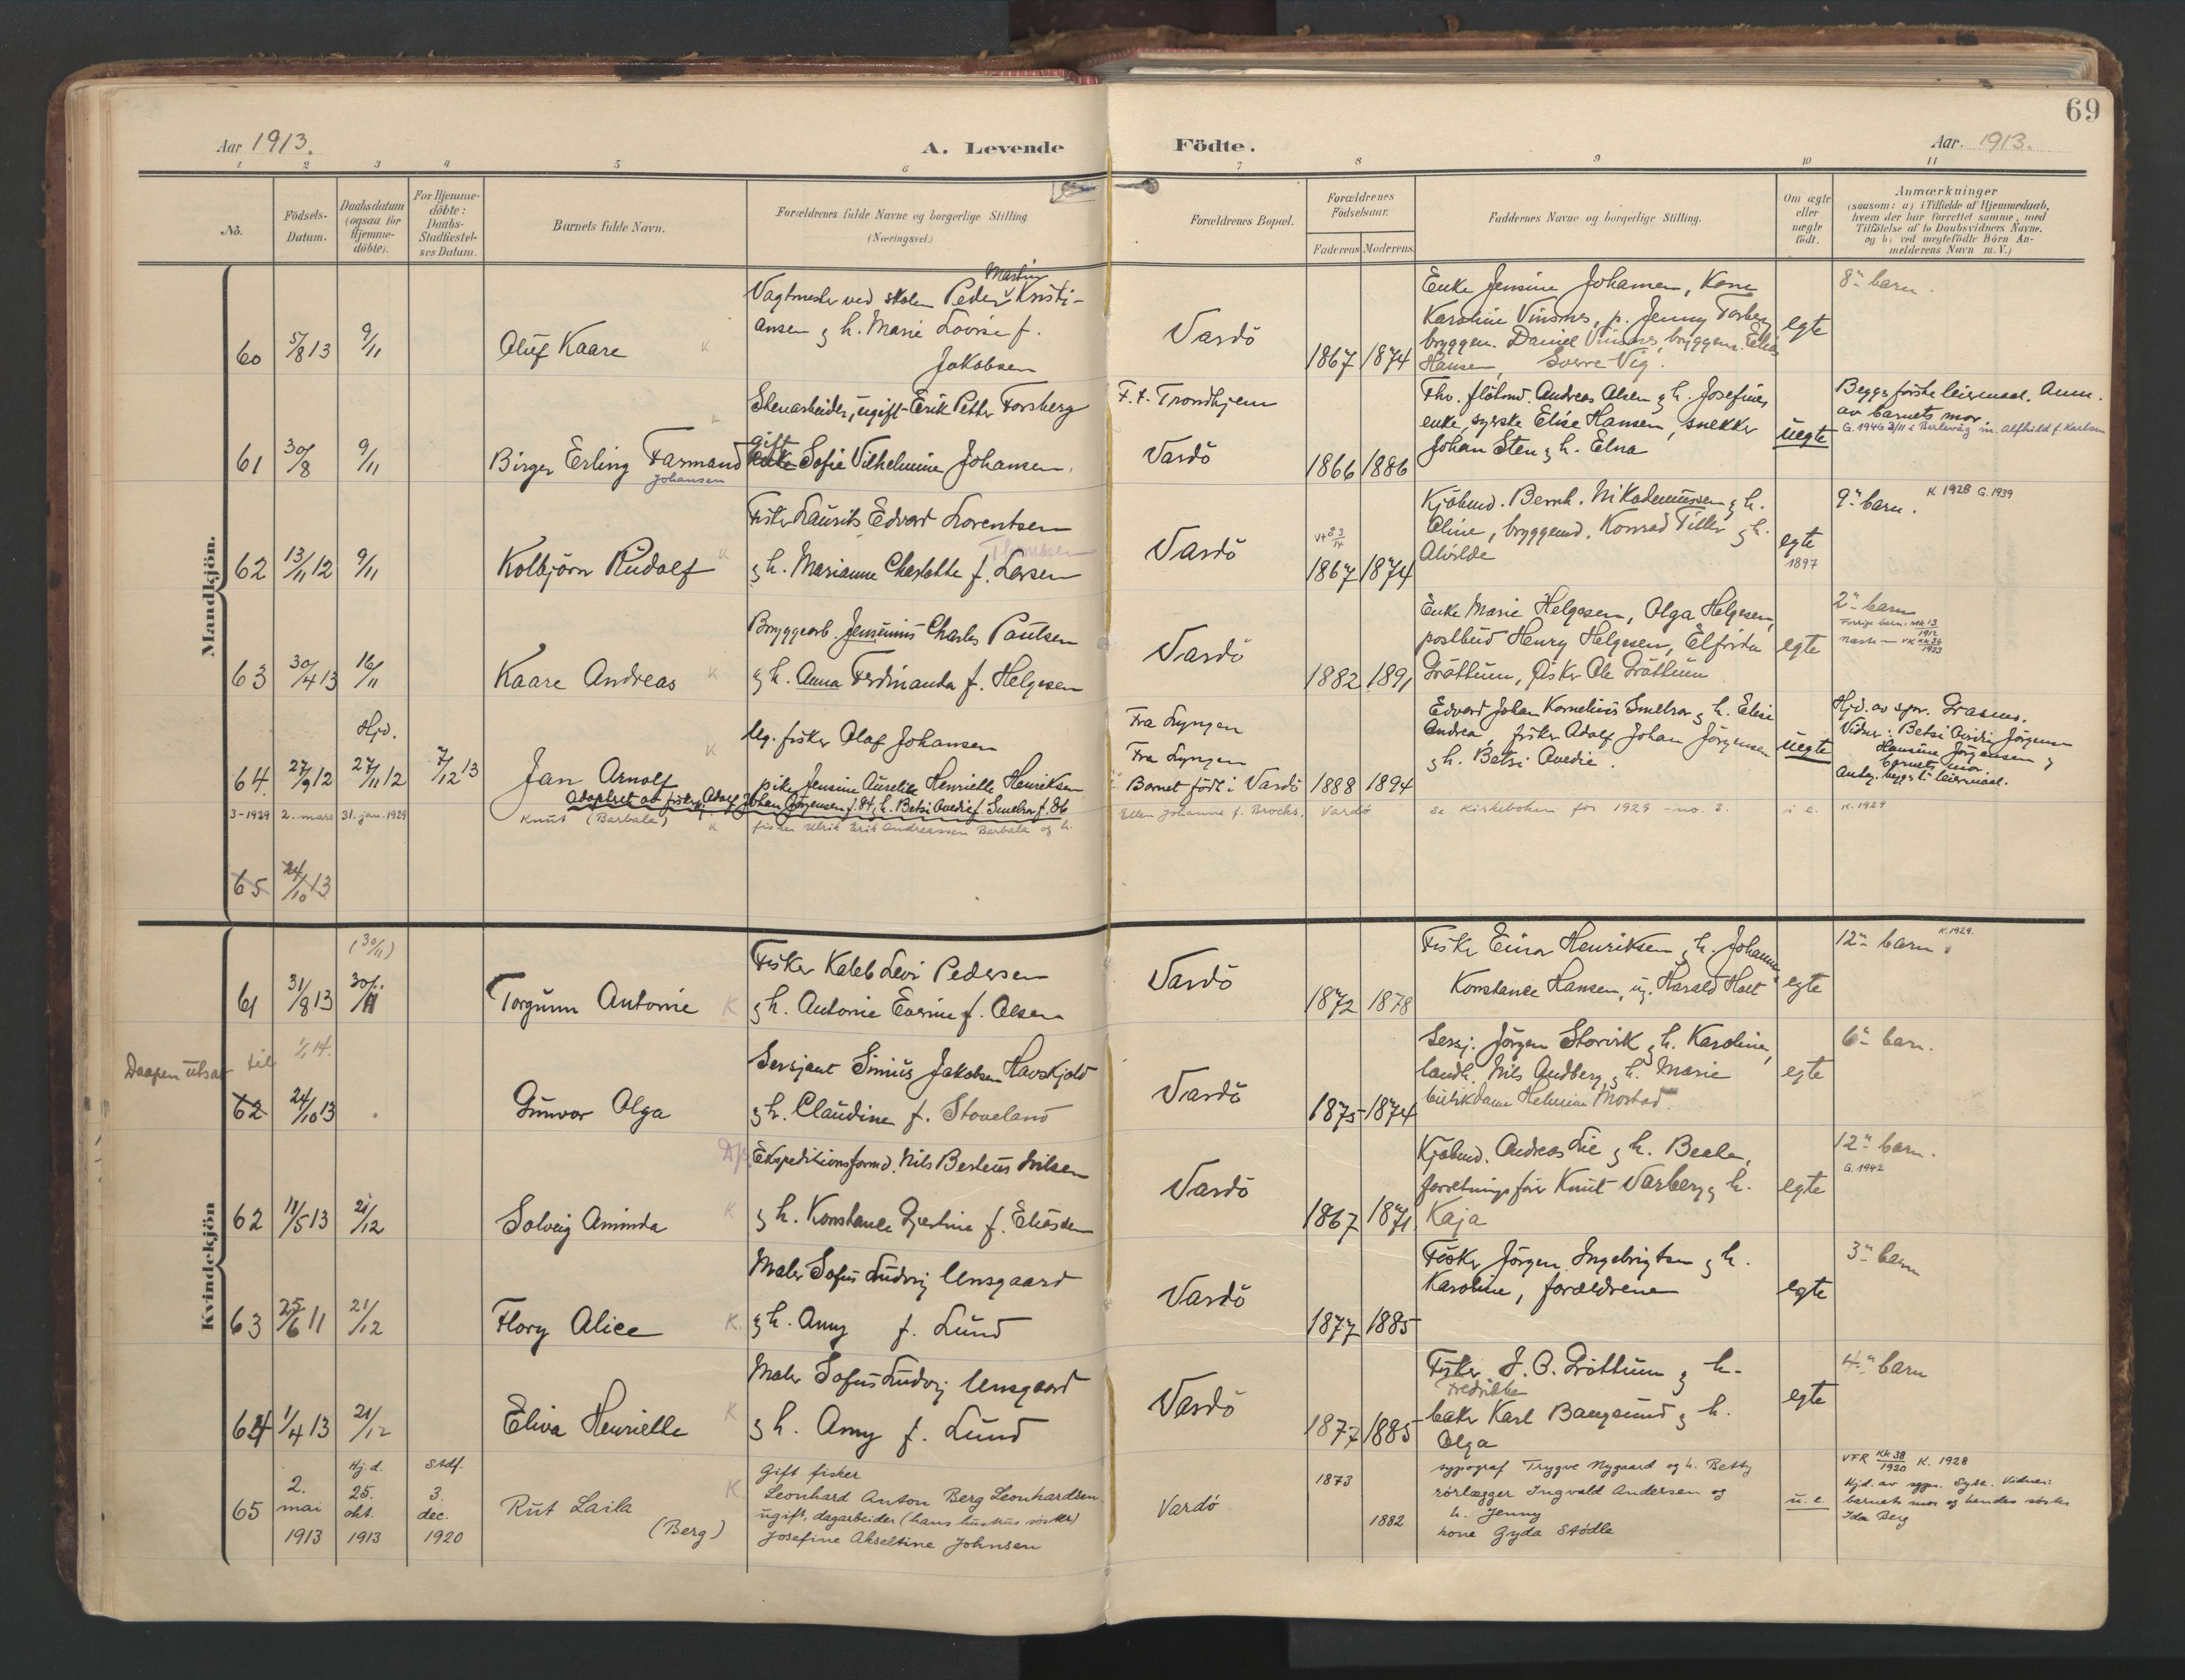 69
Aar 1913.
A. Levende Födte.
Aar. 1913.
1 2 3 4 5 6 7 8 9 10 11
No.
Födsels-Datum.
Daabsdatum (ogsaa for Hjemme-döbte).
For Hjemme-döbte: Daabs-Stadfæstel-ses Datum.
Barnets fulde Navn.
Forældrenes fulde Navne og borgerlige Stilling (Næringsvei.)
Forældrenes Bopæl.
Forældrenes Födselsaar.
Faderens Moderens
Faddernes Navne og borgerlige Stilling.
Om ægte eller uægte födt.
Anmærkninger
(saasom: a) i Tilfælde af Hjemmedaab, hvem der har forrettet samme, med Tilföielse af to Daabsvidners Navne, og b) ved uægtefödte Börn An-melderens Navn m. V.)
Mandkjön.
60 5/8 13 9/11 Oluf Kaare K
Vagtmester ved skolen Peder Martin Kristi-
ansen & h. Marie Lovise f.
Jakobsen
Vardö 1867 1874
Enke Jensine Johansen, Kone
Karoline Vinsnes, p. Jenny Forberg
bryggem. Daniel Vinsnes, bryggem. Elias
Hansen, Sverre Vig.
egte
8de barn.
61 30/8 9/11 Birger Erling Farmand
Johansen
Stenarbeider, ugift Erik Petter Forsberg
gift
Sofie Vilhelmine Johansen.
F. t. Trondhjem
Vardö 1866 1886
Fhv. flötmd. Andreas Olsen & h. Josefine,
enke, syerske Elise Hansen, snekker
Johan Sten & h. Elna
uegte
Begges förste leiermaal. Anm.
av barnets mor.
G. 1946 3/11 i Berlevåg m. Alfhild f. Karlsen
62 13/11 12 9/11 Kolbjörn Rudolf K
Fisker Laurits Edvard Lorentsen
Thomassen
& h. Marianne Charlotte f. Larsen
Vardö 1867 1874
Kjöbmd. Bernh. Nikodemussen & h.
Oline, bryggemd. Konrad Tiller & h.
Alvilde
egte
1897
9de barn.
K 1928 G. 1939
63 30/4 13 16/11 Kaare Andreas K
Bryggearb. Jensenius Charles Paulsen
& h. Anna Ferdinanda f. Helgesen
Vardö 1882 1891
Enke Marie Helgesen, Olga Helgesen,
postbud Henry Helgesen, Elfrida
Gröttum, fisker Ole Gröttum
egte
2de barn
64. 27/9 12 Hjd. 27/11 12 7/12 13 Jan Arnolf K
Ug. fisker Olaf Johansen
pike Jensine Aurelie Henriette Henriksen
Adoptret av fisker Adolf Johan Jörgensen f. 84 & h. Betsi Ovedie f. Smelror f. 86
Fra Lyngen
Fra Lyngen
Barnet födt i Vardö 1888 1894
Edvard Johan Kornelius Smelror & h. Elise
Andrea, fisker Adolf Johan Jörgensen
& h. Betsi Ovedie.
uegte
Hjd. av spr. Grasmo.
Vidner: Betsi Ovidie Jörgensen
Hansine Jörgensen &
barnets mor.
Anteg. begges 1ste leiermaal.
3-1929 2. mars 31. jan. 1929 Knut (Barbala) K
fisker Ulrik Erik Andreassen Barbala og h.
Ellen Johanne f. Brochs, Vardø
se kirkeboken for 1929 - no. 3. i e. K. 1929
65 24/10 13
Kvindekjön
61 31/8 13 (30/11) 30/11 Torgunn Antonie K
Fisker Kaleb Levi Pedersen
& h. Antonie Evrine f. Olsen
Vardö 1872 1878
Fisker Einar Henriksen & h. Johanne,
Konstanse Hansen, ug. Harald Holt
egte
12te barn.
K. 1929.
Daapen utsat til 1/1 14.
62 24/10 13 Gunvor Olga
Sersjant Sinius Jakobsen Havskjold
& h. Claudine f. Stoveland
Vardö 1875 1874
Sersj. Jörgen Storvik & h. Karoline,
landh. Nils Sudberg & h. Marie
butikdame Helmine Mostad.
egte
6te barn.
62 11/5 13 21/12 Solveig Aminda K
Ekspeditionsformd. Nils Berteus Nilsen
& h. Konstanse Gjertine f. Eliassen
Vardö 1867 1871.
Kjöbmd. Andreas Lie & h. Beate,
forretningsförer Knut Varberg & h.
Kaja
egte
12te barn.
G. 1942
63 25/6 11 21/12 Flory Alice K.
Maler Sofus Ludvig Unsgaard
& h. Amy f. Lund
Vardö 1877 1885
Fisker Jörgen Ingebrigtsen & h.
Karoline, forældrene
egte
3de barn
64 1/4 13 21/12 Eliva Henriette K
Maler Sofus Ludvig Unsgaard
& h. Amy f. Lund
Vardö 1877 1885
Fisker J. O. Gröttum & h.
Fredrikke
baker Karl Bangsund & h.
Olga
egte
4de barn
65 2. mai 1913 Hj.d. 25. okt. 1913 Stdf. 3. dec. 1920 Rut Laila (Berg) K.
Gift fisker
Leonhard Anton Berg Leonhardsen
ugift, dagarbeider (hans hustrus søster)
Josefine Akseltine Johnsen
Vardø 1873 1882
typograf Trygve Nygaard og h. Betty
rörlægger Ingvald Andersen og
h. Jenny
kone Gyda Stødle
u. e.
VFR KK 38/1920 K. 1928
Hjd. av sgpr. Syse. Vidner:
barnets mor og hendes søster
Ida Berg